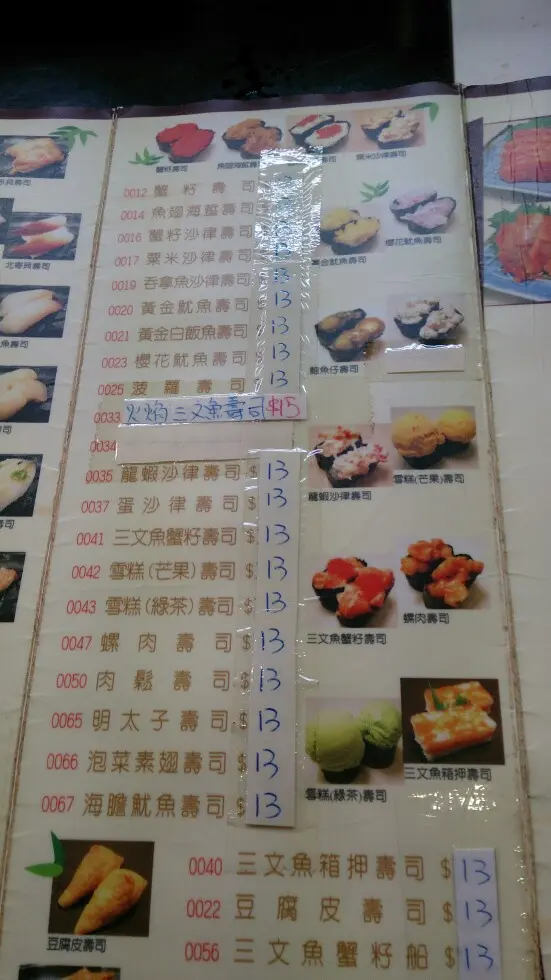 蟹籽壽司
魚翅海蜇壽司
壽司
粟米沙律壽司
0012 蟹籽壽司
0014 魚翅海蜇壽司
0016 蟹籽沙律壽司 13
0017 粟米沙律壽司 13
0019 吞拿魚沙律壽司 13
0020 黃金魷魚壽司 13
0021 黃金白飯魚壽司 13
0023 櫻花魷魚壽司 13
0025 菠蘿壽司 13
0033 火焰三文魚壽司 $15
0034
0035 龍蝦沙律壽司 $ 13
0037 蛋沙律壽司 $ 13
0041 三文魚蟹籽壽司 $ 13
0042 雪糕(芒果)壽司 $ 13
0043 雪糕(綠茶)壽司 $ 13
0047 螺肉壽司 $ 13
0050 肉鬆壽司 $ 13
0065 明太子壽司 $ 13
0066 泡菜素翅壽司 $ 13
0067 海膽魷魚壽司 $ 13
黃金魷魚壽司
櫻花魷魚壽司
鯰魚仔壽司
龍蝦沙律壽司
雪糕(芒果)壽司
三文魚蟹籽壽司
螺肉壽司
雪糕(綠茶)壽司
三文魚箱押壽司
0040 三文魚箱押壽司 $ 13
0022 豆腐皮壽司 $ 13
0056 三文魚蟹籽船 $ 13
豆腐皮壽司
北寄貝壽司
魚壽司
壽司
壽司